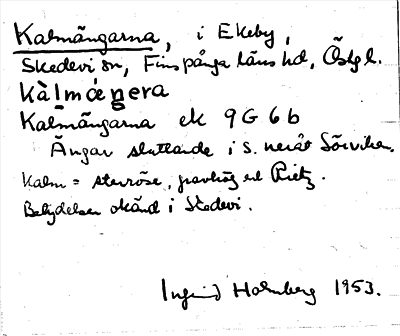 Kalmängarna, i Ekeby,
Skedevi sn, Finspånga läns hd, Östgl.
kàlmáŋera
Kalmängarna ek 9G 6b
Ängar sluttande i s. neråt Sörviken.
Kalm = stenröse, gravhög enl Rietz.
Betydelsen okänd i Skedevi.
Ingrid Holmberg 1953.